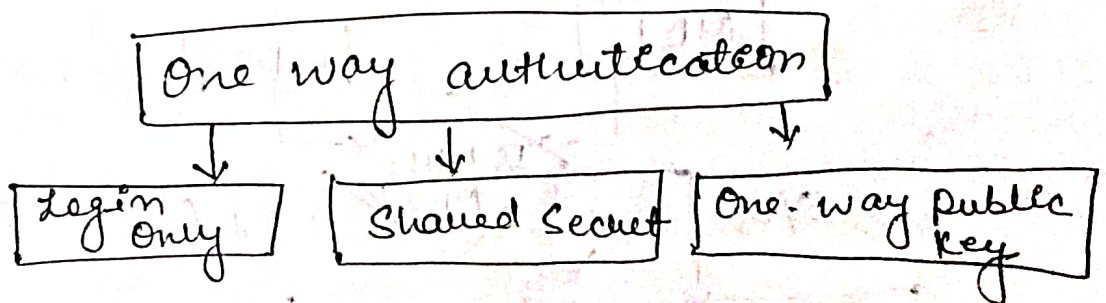 One way authutication
Login
Only
Shared Secret
One-way Public
key